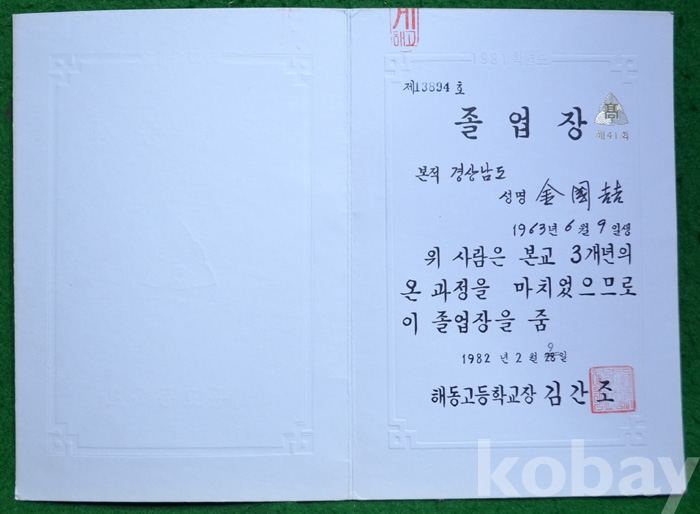 계
해고
1981 학년도
제13894호
졸업장
高
제41회
본적 경상남도
성명 金國喆
1963년 6월 9일생
위 사람은 본교 3개년의
온 과정을 마치었으므로
이 졸업장을 줌
1982년 2월 9일
해동고등학교장 김간조
kobay